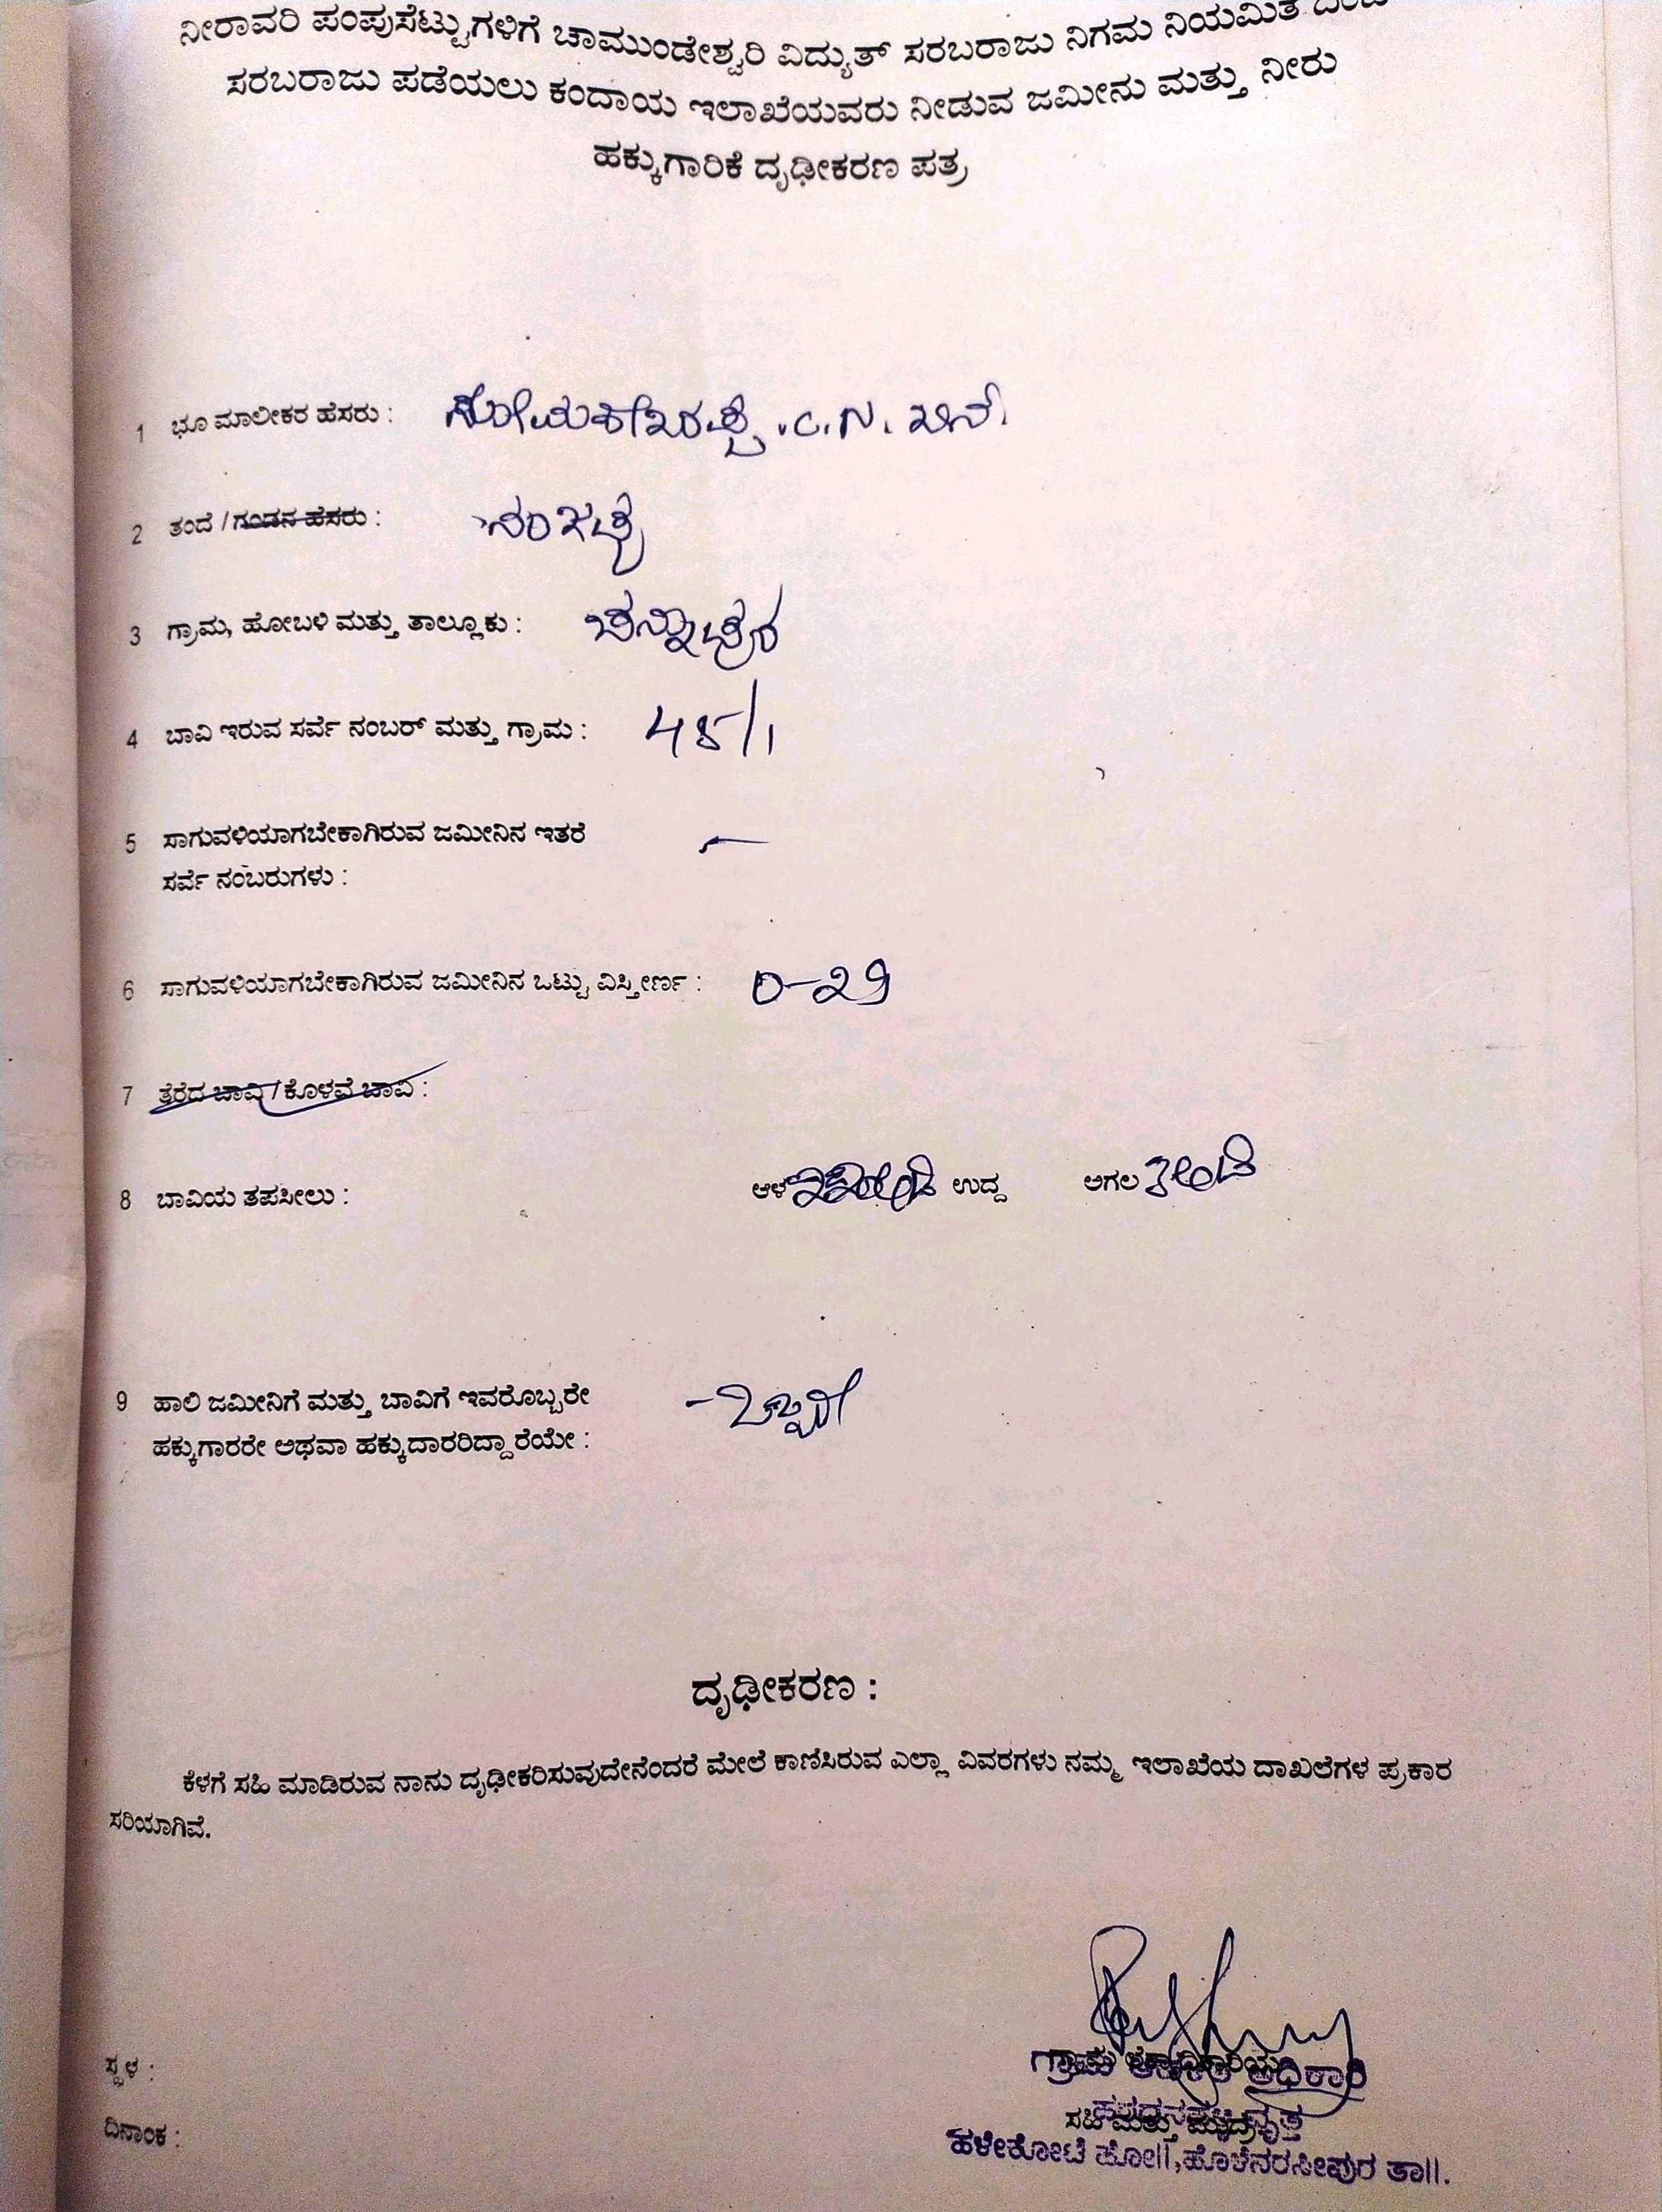 ನೀರಾವರಿ ಪಂಪುಸೆಟ್ಟುಗಳಿಗೆ ಚಾಮುಂಡೇಶ್ವರಿ ವಿದ್ಯುತ್ ಸರಬರಾಜು ನಿಗಮ ನಿಯಮಿತ
ಸರಬರಾಜು ಪಡೆಯಲು ಕಂದಾಯ ಇಲಾಖೆಯವರು ನೀಡುವ ಜಮೀನು ಮತ್ತು ನೀರು
ಹಕ್ಕುಗಾರಿಕೆ ದೃಢೀಕರಣ ಪತ್ರ
1 ಭೂ ಮಾಲೀಕರ ಹೆಸರು : ಸೋಮಶೇಖರಪ್ಪ .C.N.
2 ತಂದೆ / ಗಂಡನ ಹೆಸರು : ನಂಜಪ್ಪ
3 ಗ್ರಾಮ, ಹೋಬಳಿ ಮತ್ತು ತಾಲ್ಲೂಕು : ಚನ್ನಾಪುರ
4 ಬಾವಿ ಇರುವ ಸರ್ವೆ ನಂಬರ್ ಮತ್ತು ಗ್ರಾಮ : 45/1
5 ಸಾಗುವಳಿಯಾಗಬೇಕಾಗಿರುವ ಜಮೀನಿನ ಇತರೆ —
ಸರ್ವೆ ನಂಬರುಗಳು :
6 ಸಾಗುವಳಿಯಾಗಬೇಕಾಗಿರುವ ಜಮೀನಿನ ಒಟ್ಟು ವಿಸ್ತೀರ್ಣ : 0-29
7 ತೆರೆದ ಬಾವಿ / ಕೊಳವೆ ಬಾವಿ :
8 ಬಾವಿಯ ತಪಸೀಲು : ಆಳ ಉದ್ದ ಅಗಲ
9 ಹಾಲಿ ಜಮೀನಿಗೆ ಮತ್ತು ಬಾವಿಗೆ ಇವರೊಬ್ಬರೇ - ಒಬ್ಬರೇ
ಹಕ್ಕುಗಾರರೇ ಅಥವಾ ಹಕ್ಕುದಾರರಿದ್ದಾರೆಯೇ :
ದೃಢೀಕರಣ :
ಕೆಳಗೆ ಸಹಿ ಮಾಡಿರುವ ನಾನು ದೃಢೀಕರಿಸುವುದೇನೆಂದರೆ ಮೇಲೆ ಕಾಣಿಸಿರುವ ಎಲ್ಲಾ ವಿವರಗಳು ನಮ್ಮ ಇಲಾಖೆಯ ದಾಖಲೆಗಳ ಪ್ರಕಾರ
ಸರಿಯಾಗಿವೆ.
ಸ್ಥಳ :
ಗ್ರಾಮ ಅಧಿಕಾರಿ
ದಿನಾಂಕ :
ಸಹಿ ಮತ್ತು ಮುದ್ರೆ
ಹಳೇಕೋಟೆ ಹೋ||, ಹೊಳೆನರಸೀಪುರ ತಾ||.